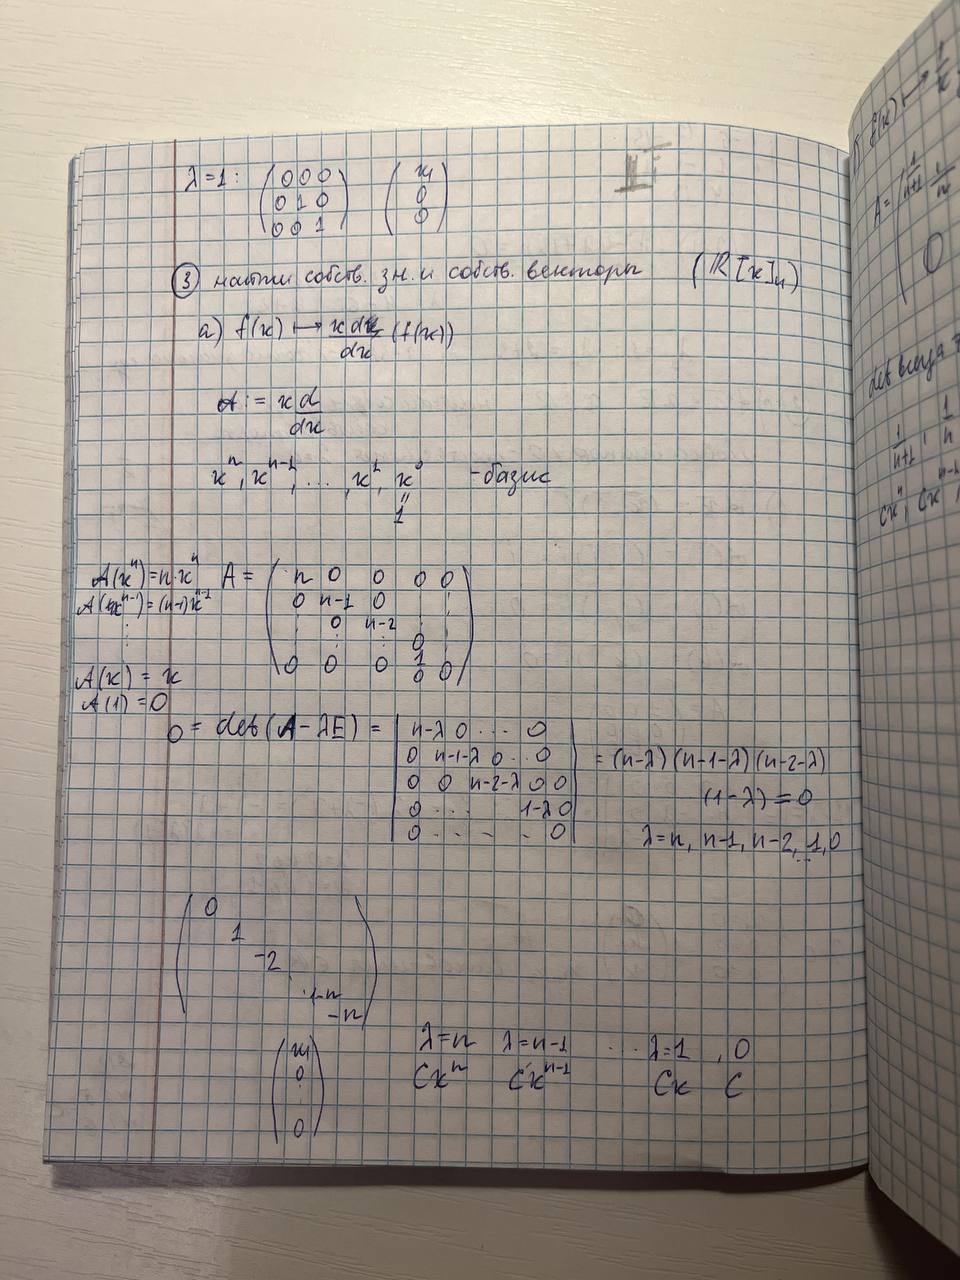 λ=1: (0 0 0
0 1 0
0 0 1) (x₁
0
0)
③ найти собств. зн. и собств. векторы (ℝ[x]ₙ)
а) f(x) ↦ x d/dx (f(x))
A := x d/dx
xⁿ, xⁿ⁻¹, ..., x¹, x⁰ - базис
"
1
A(xⁿ)=n·xⁿ A = (n 0 0 0 0
A(xⁿ⁻¹)=(n-1)xⁿ⁻¹ 0 n-1 0
⋮ ⋮ 0 n-2
⋮ 0
A(x) = x 0 0 0 1
A(1)=0 0 0)
0 = det(A-λE) = |n-λ 0 ... 0
0 n-1-λ 0 .. 0 = (n-λ)(n-1-λ)(n-2-λ)
0 0 n-2-λ 0 0
0 ... 1-λ 0 (1-λ) = 0
0 - - - - 0|
λ=n, n-1, n-2, .. 1, 0
(0
1
-2
1-n
-n)
(x₁
0
⋮
0)
λ=n λ=n-1 ... λ=1 , 0
Cxⁿ Cxⁿ⁻¹ Cx C
f(x) ↦ 1/x
A = (1/n+1 1/n
0
det всегда
1/n+1, 1/n
Cxⁿ, Cxⁿ⁻¹